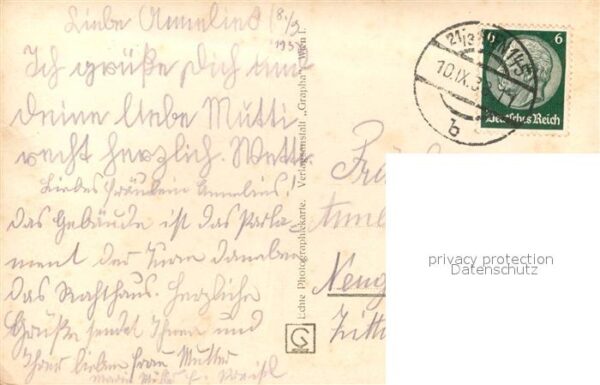 Liebe Annelies! 8./9.
1938
Ich grüße Dich und
deine liebe Mutti
recht herzlich.
Liebes Fräulein Annelies!
das Gebäude ist das Parla-
ment der Turm daneben
das Rathhaus. Herzliche
Grüße sendet Ihnen und
Ihrer lieben Frau Mutter
Echte Photographiekarte. Verlagsanstalt „Grapha“ Wien I.
G
10.IX.3
b
6 6
Deutsches Reich
privacy protection
Datenschutz